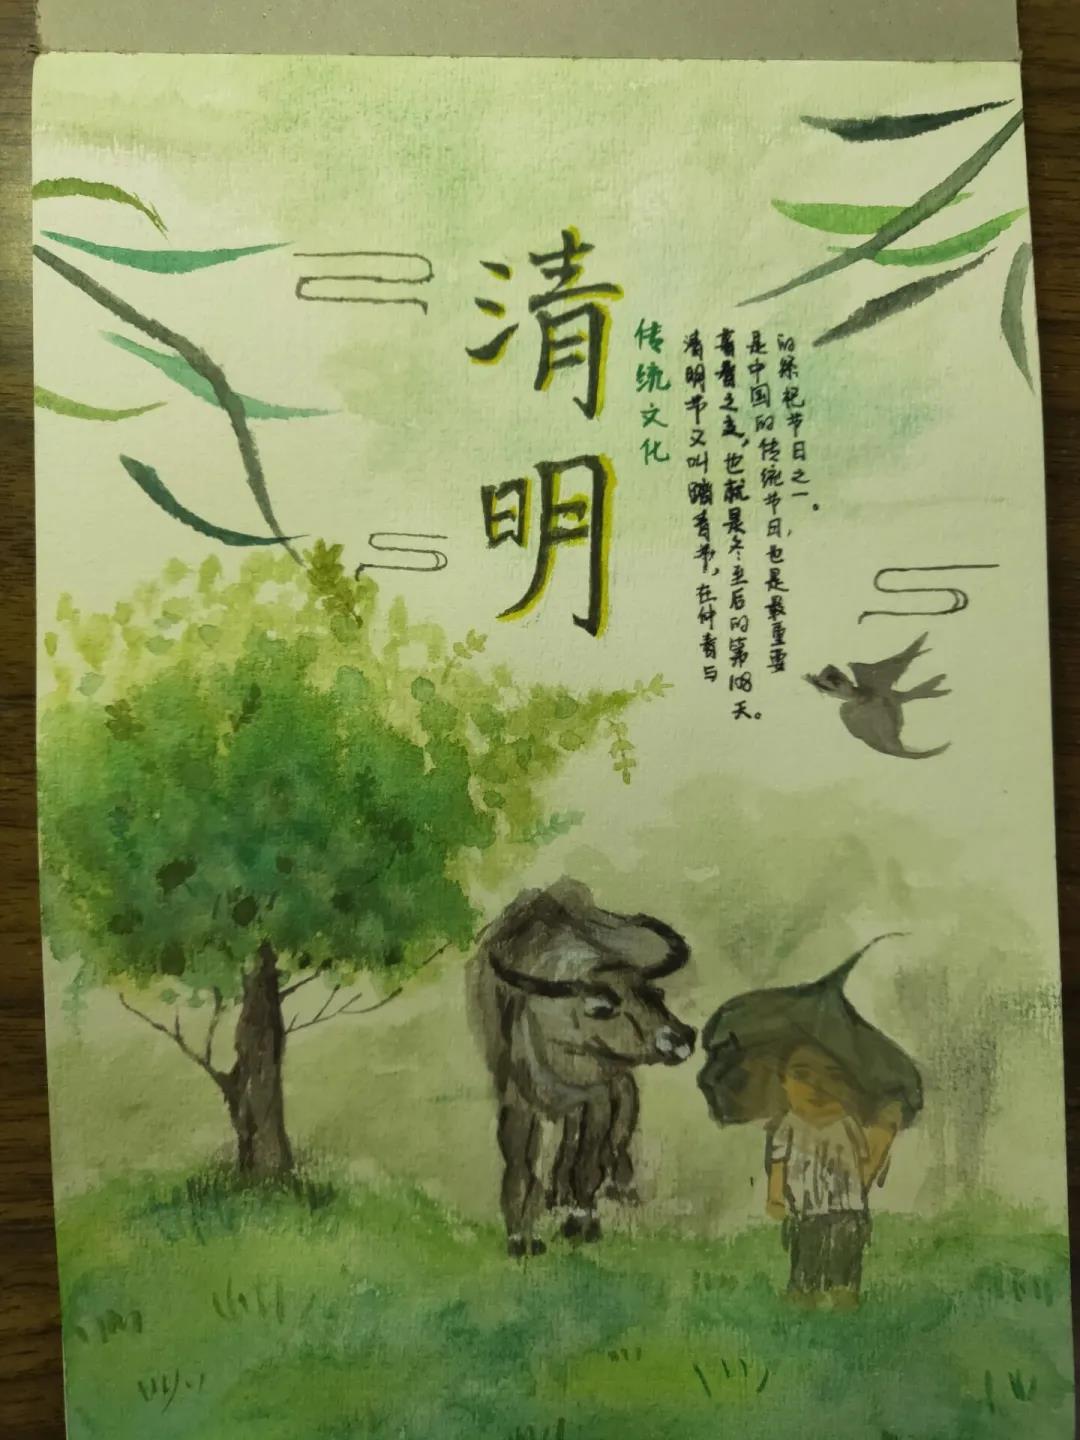 清明
传统文化
清明节又叫踏青节，在仲春与
暮春之交，也就是冬至后的第108天。
是中国的传统节日，也是最重要
的祭祀节日之一。